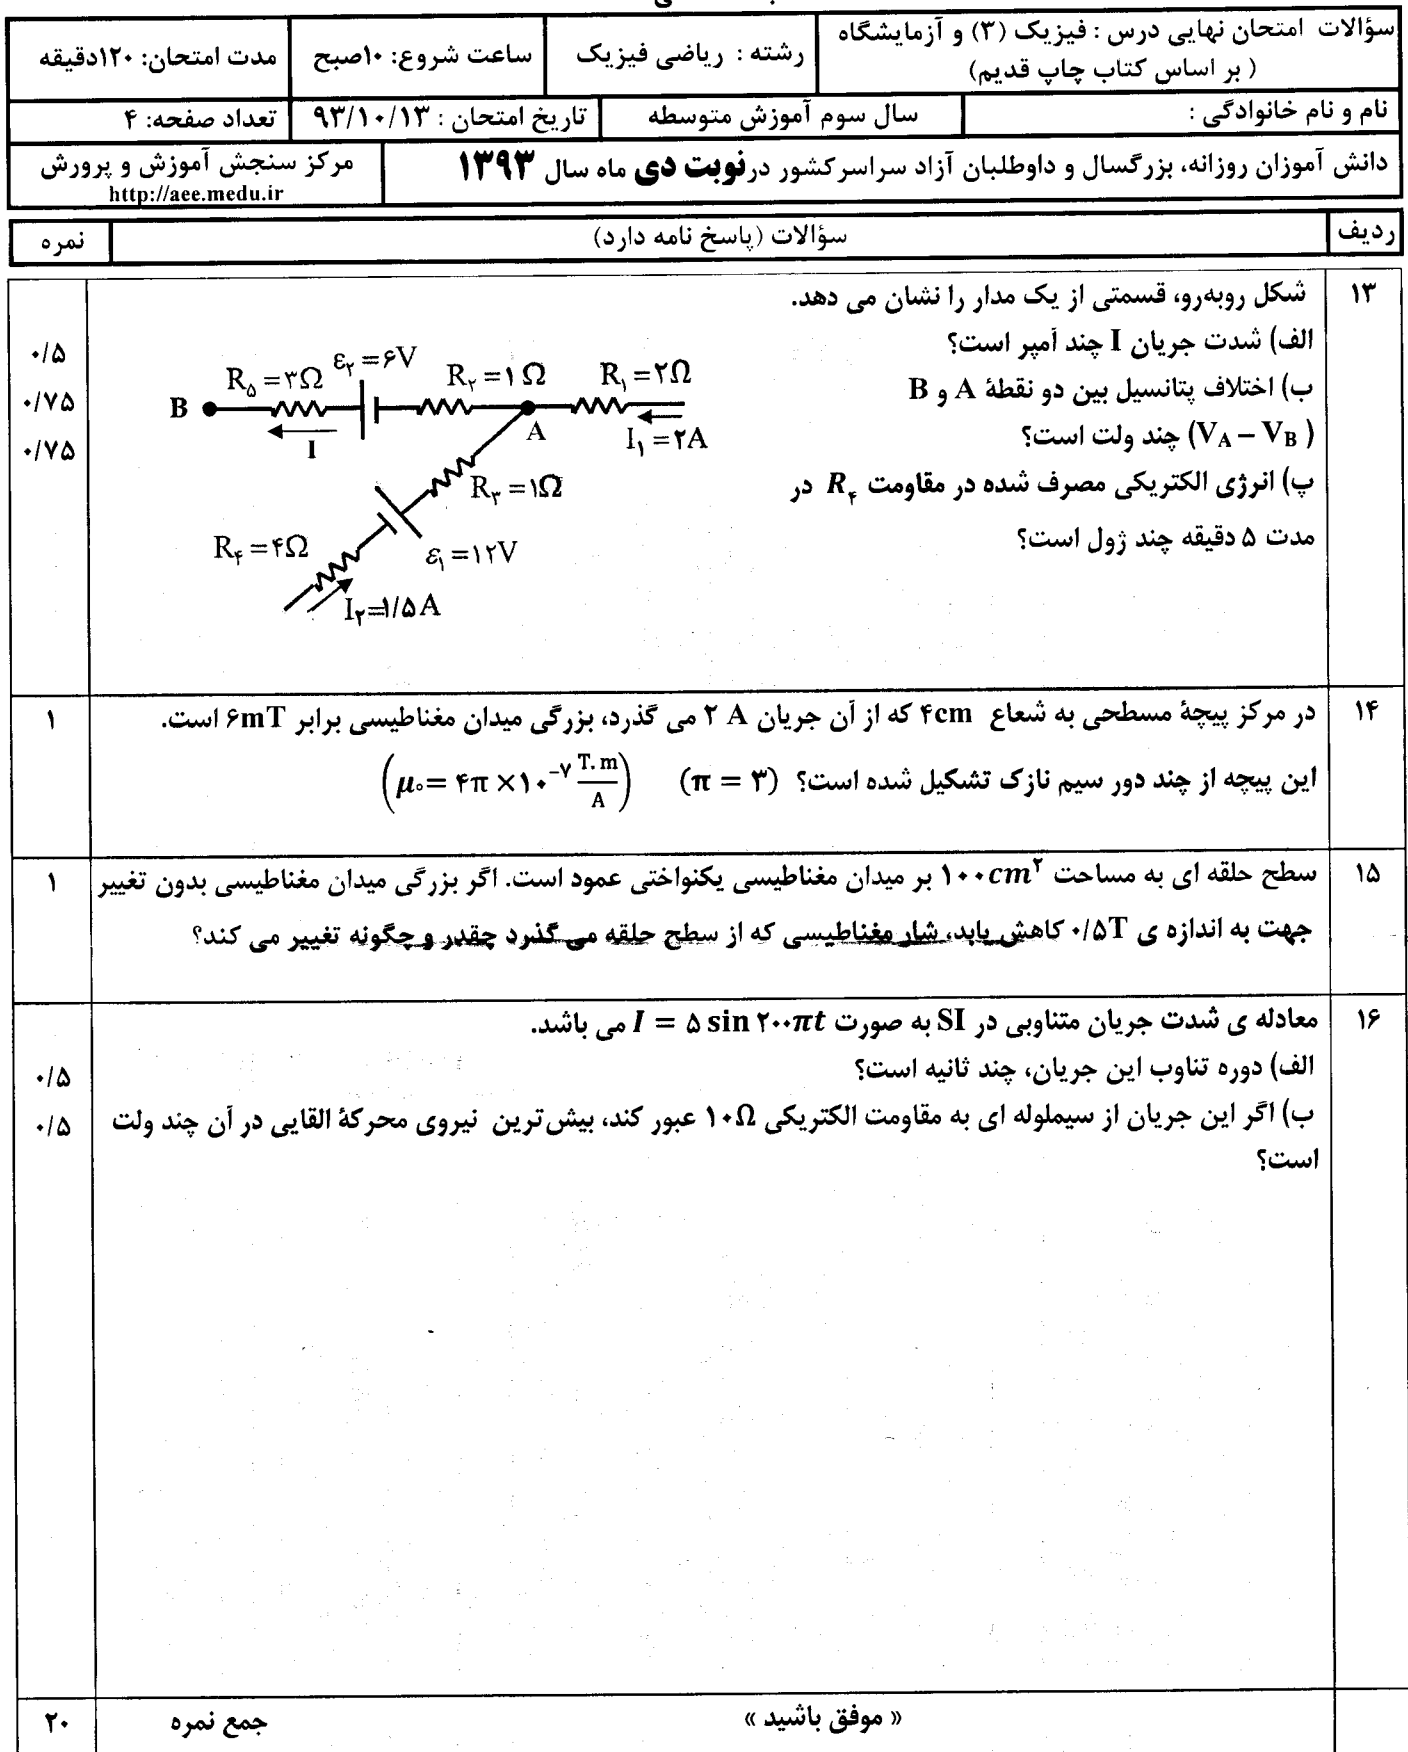 سؤالات امتحان نهایی درس : فیزیک (۳) و آزمایشگاه
( بر اساس کتاب چاپ قدیم)
رشته : ریاضی فیزیک
ساعت شروع: ۱۰صبح
مدت امتحان: ۱۲۰دقیقه
نام و نام خانوادگی :
سال سوم آموزش متوسطه
تاریخ امتحان : ۹۳/۱۰/۱۳
تعداد صفحه: ۴
دانش آموزان روزانه، بزرگسال و داوطلبان آزاد سراسرکشور درنوبت دی ماه سال ۱۳۹۳
مرکز سنجش آموزش و پرورش
http://aee.medu.ir
ردیف
سؤالات (پاسخ نامه دارد)
نمره
۱۳
شکل روبه‌رو، قسمتی از یک مدار را نشان می دهد.
الف) شدت جریان I چند آمپر است؟
۰/۵
ب) اختلاف پتانسیل بین دو نقطهٔ A و B
۰/۷۵
( V_A – V_B) چند ولت است؟
۰/۷۵
پ) انرژی الکتریکی مصرف شده در مقاومت R_۴ در
مدت ۵ دقیقه چند ژول است؟
R_۵ = ۳Ω
ε_۲ = ۶V
R_۲ = ۱ Ω
R_۱ = ۲Ω
B
I
A
I_۱ = ۲A
R_۳ = ۱Ω
R_۴ = ۴Ω
ε_۱ = ۱۲V
I_۲=۱/۵ A
۱۴
در مرکز پیچهٔ مسطحی به شعاع ۴cm که از آن جریان ۲ A می گذرد، بزرگی میدان مغناطیسی برابر ۶mT است.
۱
این پیچه از چند دور سیم نازک تشکیل شده است؟ (π = ۳) (μ۰= ۴π ×۱۰^{-۷} T.m/A)
۱۵
سطح حلقه ای به مساحت ۱۰۰cm^۲ بر میدان مغناطیسی یکنواختی عمود است. اگر بزرگی میدان مغناطیسی بدون تغییر
۱
جهت به اندازه ی ۰/۵T کاهش یابد، شار مغناطیسی که از سطح حلقه می گذرد چقدر و چگونه تغییر می کند؟
۱۶
معادله ی شدت جریان متناوبی در SI به صورت I = ۵ sin ۲۰۰πt می باشد.
الف) دوره تناوب این جریان، چند ثانیه است؟
۰/۵
ب) اگر این جریان از سیملوله ای به مقاومت الکتریکی ۱۰Ω عبور کند، بیش‌ترین نیروی محرکهٔ القایی در آن چند ولت
۰/۵
است؟
« موفق باشید »
جمع نمره
۲۰